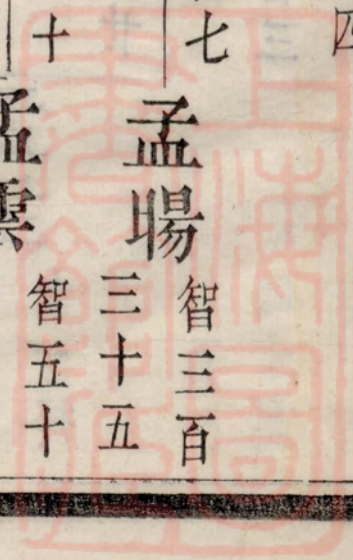 四
七
孟暘 智三百
三十五
十
孟雲 智五十